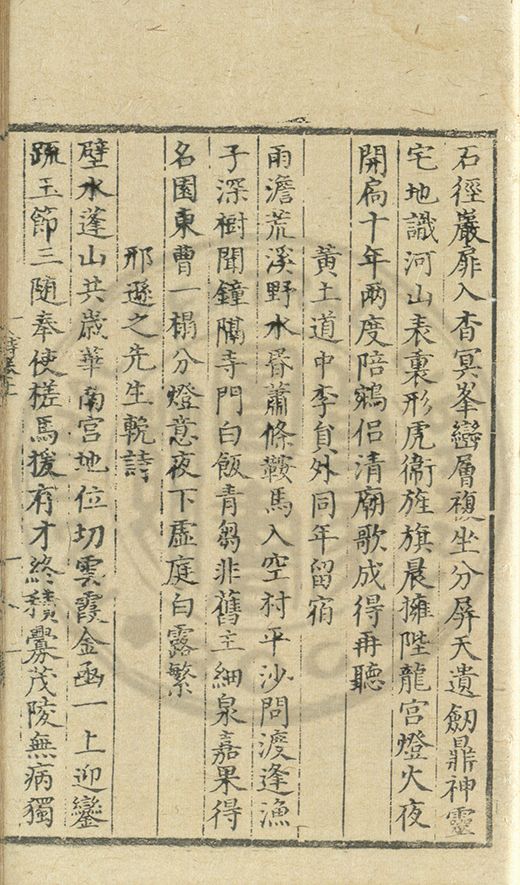 石徑巖扉入杳冥峯巒層複坐分屏天遺劒鼎神靈
宅地識河山表裏形虎衞旌旗晨擁陛龍宮燈火夜
開扃十年兩度陪鵷侣清廟歌成得再聽
黃土道中李貟外同年留宿
雨澹荒溪野水昏蕭條鞍馬入空村平沙問渡逢漁
子深樹聞鐘隔寺門白飯青芻非舊主細泉嘉果得
名園東曹一榻分燈意夜下虛庭白露繁
邢遜之先生輓詩
壁水蓬山共歲華南宮地位切雲霞金函一上迎鑾
疏玉節三隨奉使槎馬援有才終矍茂陵無病獨